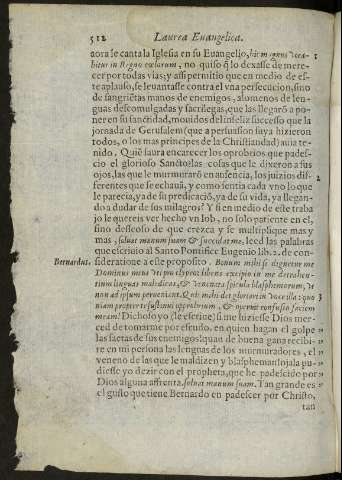 512 Laurea Euangelica.
aora le canta la Iglesia en su Euangelio, hic magnus voca-
bitur in Regno cælorum, no quiso q̃ lo dexasse de mere-
cer por todas vias; y assi permitio que en medio de es-
te aplauso, se leuantasse contra el vna persecucion, sino
de sangriẽtas manos de enemigos, alomenos de len-
guas descomulgadas y sacrilegas, que las llegarõ a po-
ner en su sanctidad, mouidos del infeliz successo que la
jornada de Gerusalem (que a persuasion suya hizieron
todos, o los mas principes de la Christiandad) auia te-
nido. Quiẽ saura encarecer los oprobrios que pades-
cio el glorioso Sancto? las cosas que le dixeron a sus
ojos, las que le murmurarõ en ausencia, los juizios dif-
ferentes que se echauã, y como sentia cada vno lo que
le parecia, ya de su predicaciõ, ya de su vida, ya llegan-
do a dudar de sus milagros? Y si en medio de este traba
jo le quereis ver hecho vn Iob, no solo patiente en el,
sino desseoso de que crezca y se multiplique mas y
mas, soluat manum suam & succidat me. leed las palabras
que escriuio al Santo Pontifice Eugenio lib. 2. de con-
Bernardus. sideratione a este proposito. Bonum mihi si dignetur me
Dominus meus vti pro clypeo: libens excipio in me detrahen-
tium linguas maledicas, & venenata spicula blasphemorum, vt
non ad ipsum perueniant.
niam propter te sustinui opprobrium, & operuit confusio faciem
meam. Dichoso yo (le escriue) si me hiziesse Dios mer-
ced de tomarme por escudo, en quien hagan el golpe
las saetas de sus enemigos! quan de buena gana recibi-
re en mi persona las lenguas de los murmuradores, el
veneno de las que le maldizen y blasphemã! ojala pu-
diesse yo dezir con el propheta, que he padescido por
Dios alguna affrenta. soluat manum suam. Tan grande es
el gusto que tiene Bernardo en padescer por Christo,
tan